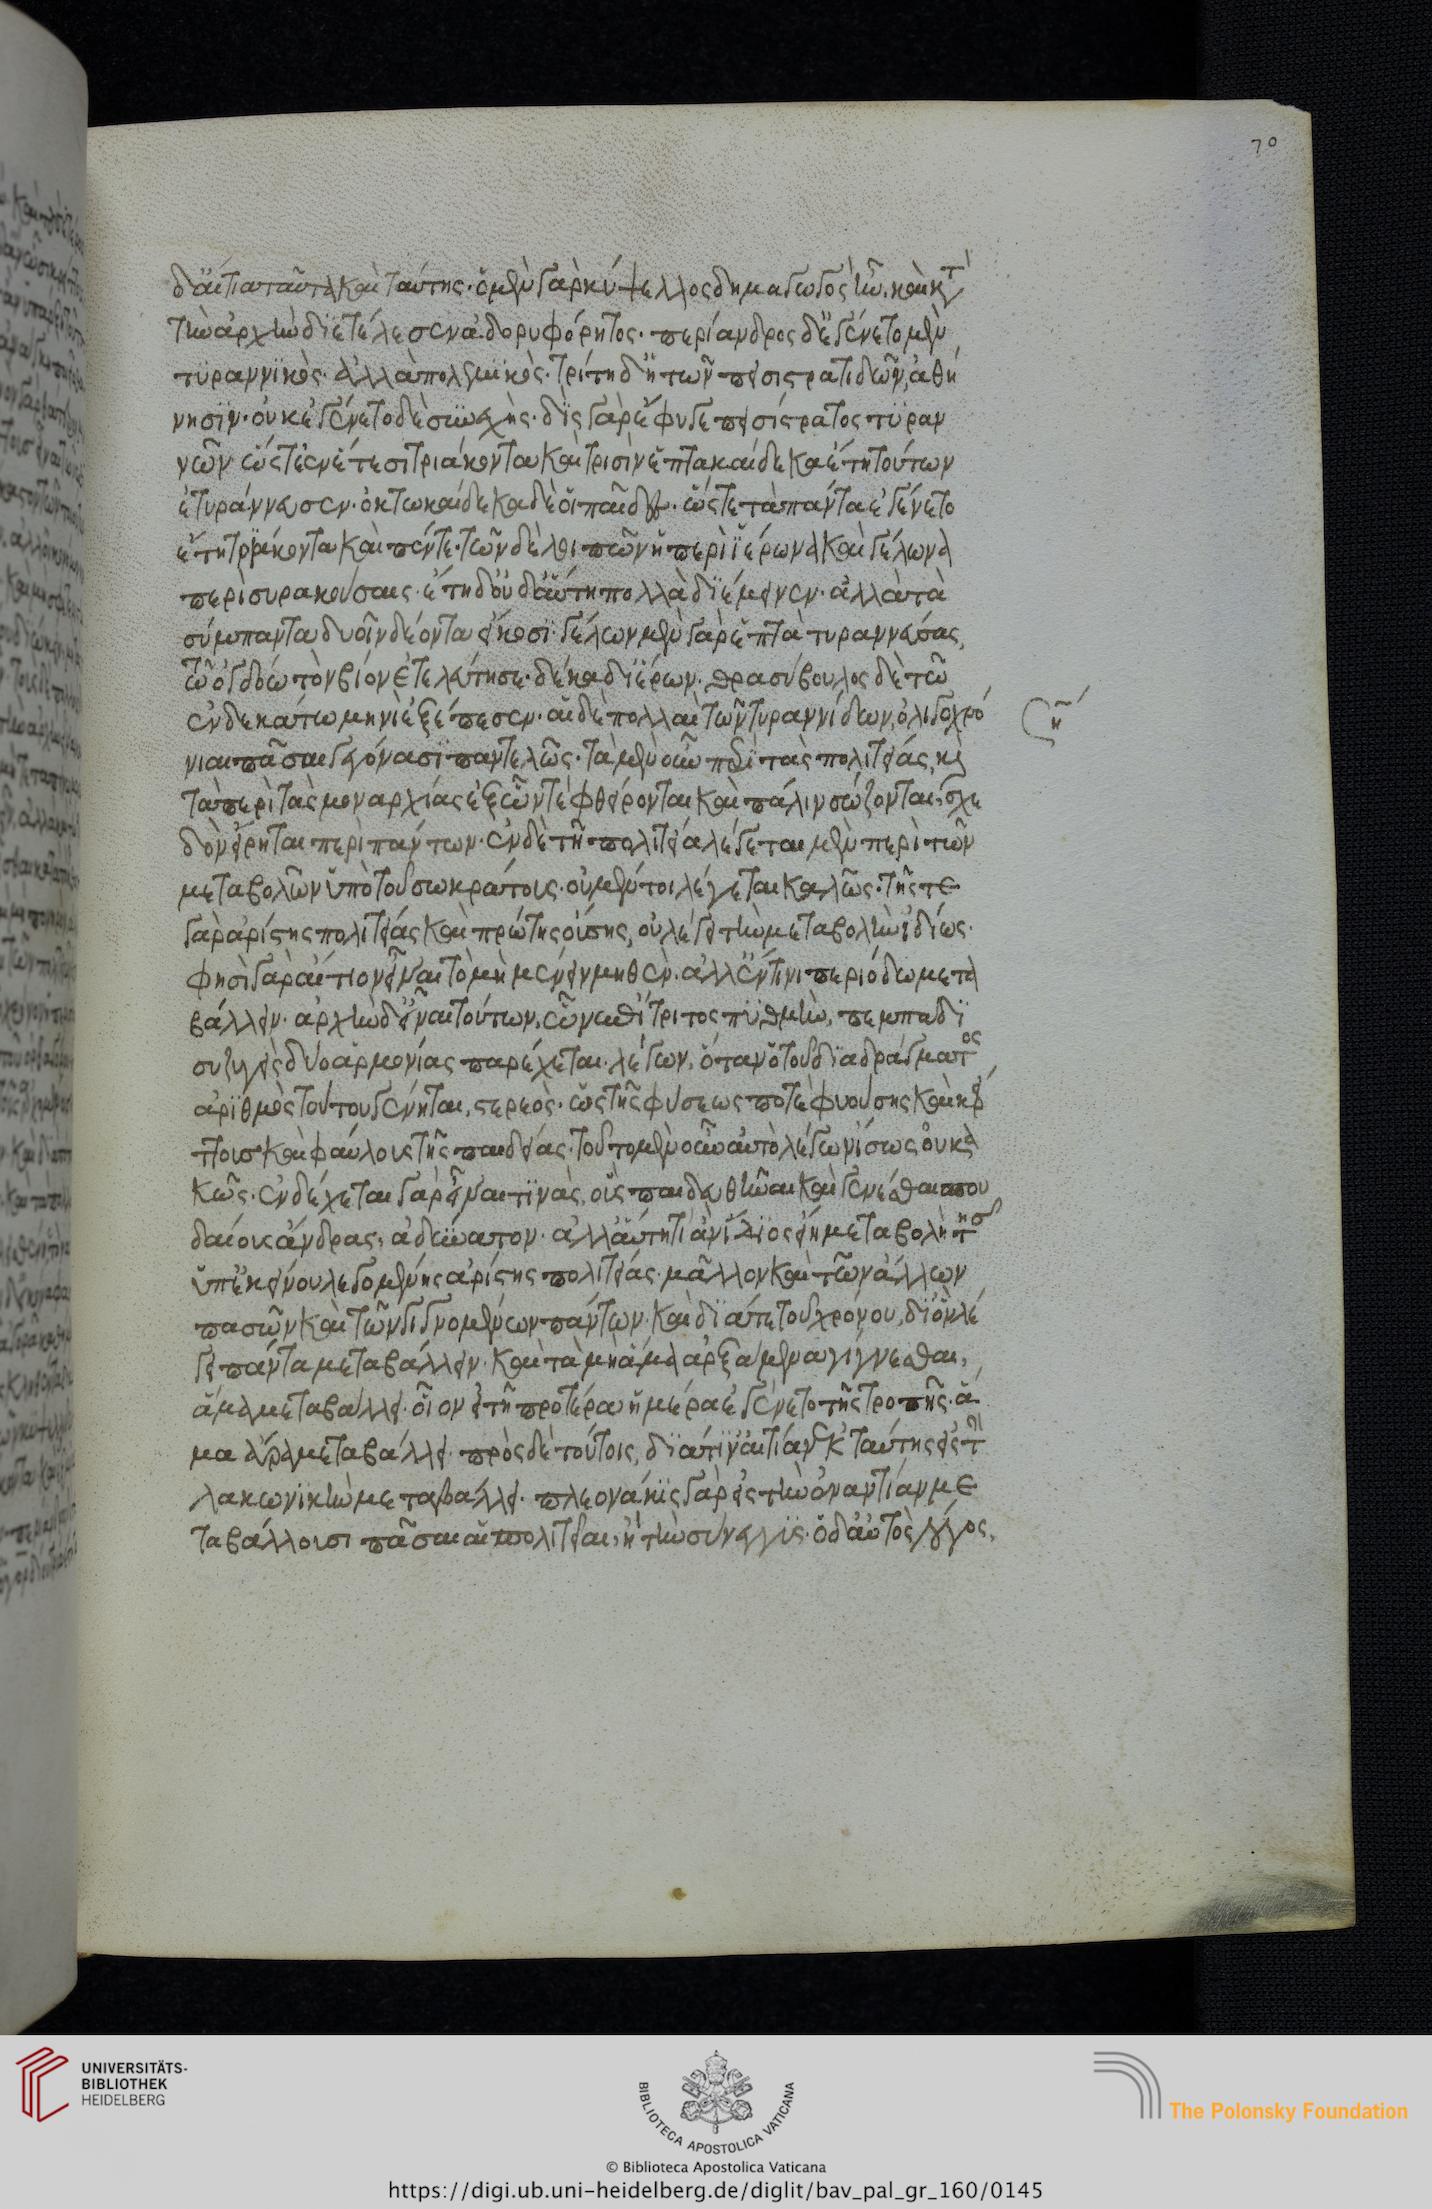 70
δ' αἴτια ταῦτα καὶ ταύτης· ὁ μὲν γὰρ κύψελλος δημαγωγὸς ἦν. καὶ κατὰ
τὴν ἀρχὴν διετέλεσεν ἀδορυφόρητος· περίανδρος δ' ἐγένετο μὲν
τυραννικὸς· ἀλλὰ πολεμικὸς· τρίτη δ' ἡ τῶν πεισιστρατιδῶν, ἀθή
νησιν· οὐκ ἐγένετο δὲ συνεχής· δὶς γὰρ ἔφυγε πεισίστρατος τυραν
νῶν ὥστ' ἐν ἔτεσι τριάκοντα καὶ τρισὶν ἑπτακαίδεκα ἔτη τούτων
ἐτυράννευσεν· ὀκτωκαίδεκα δὲ οἱ παῖδες· ὥστε τὰ πάντα ἐγένετο
ἔτη τριάκοντα καὶ πέντε· τῶν δὲ λοιπῶν ἡ περὶ ἱέρωνα καὶ γέλωνα
περὶ συρακούσαις· ἔτη δ' οὐδ' αὕτη πολλὰ διέμεινεν· ἀλλὰ τὰ
σύμπαντα δυοῖν δέοντα εἴκοσι· γέλων μὲν γὰρ ἑπτὰ τυραννεύσας,
τῶ ὀγδόω τὸν βίον ἐτελεύτησε· δέκα δ' ἱέρων· θρασύβουλος δὲ τῶ
ἑνδεκάτω μηνὶ ἐξέπεσεν· αἱ δὲ πολλαὶ τῶν τυραννίδων, ὀλιγοχρό
νιαι πᾶσαι γεγόνασι παντελῶς· τὰ μὲν οὖν περὶ τὰς πολιτείας, καὶ
τὰ περὶ τὰς μοναρχίας ἐξ ὧν τε φθείρονται καὶ πάλιν σώζονται, σχε
δὸν εἴρηται περὶ πάντων· ἐν δὲ τῆ πολιτεία λέγεται μὲν περὶ τῶν
μεταβολῶν ὑπὸ τοῦ σωκράτους· οὐ μέντοι λέγεται καλῶς· τῆς τε
γὰρ ἀρίστης πολιτείας καὶ πρώτης οὔσης, οὐ λέγει τὴν μεταβολὴν ἰδίως·
φησὶ γὰρ αἴτιον εἶναι τὸ μὴ μένειν μηθὲν· ἀλλ' ἔν τινι περιόδω μετα
βάλλειν· ἀρχὴν δ' εἶναι τούτων, ὧν ἐπίτριτος πυθμὴν, πεμπάδι
συζυγεὶς δύο ἁρμονίας παρέχεται· λέγων, ὅταν ὁ τοῦ διαδράγματος
ἀριθμὸς τούτου γένηται, στερεός· ὡς τῆς φύσεως ποτὲ φυούσης καὶ κρ
είττους καὶ φαύλους τῆς παιδείας· τοῦτο μὲν οὖν αὐτὸ λέγων ἴσως οὐ κα
κῶς· ἐνδέχεται γὰρ εἶναι τινὰς, οὓς παιδευθῆναι καὶ γενέσθαι σπου
δαίους ἄνδρας, ἀδύνατον· ἀλλ' αὕτη τί ἂν ἴδιος εἴη μεταβολὴ τῆς
ὑπ' ἐκείνου λεγομένης ἀρίστης πολιτείας· μᾶλλον καὶ τῶν ἄλλων
πασῶν καὶ τῶν γιγνομένων πάντων· καὶ διά τε τοῦ χρόνου, δι' ὃν λέ
γει πάντα μεταβάλλειν· καὶ τὰ μὴ ἅμα ἀρξάμενα γίγνεσθαι,
ἅμα μεταβάλλει· οἷον εἰ τῆ προτέρα ἡμέρα ἐγένετο τῆς τροπῆς· ἅ
μα ἄρα μεταβάλλει· πρὸς δὲ τούτοις, διὰ τίν' αἰτίαν ἐκ ταύτης εἰς τὴν
λακωνικὴν μεταβάλλει· πλεονάκις γὰρ εἰς τὴν ἐναντίαν με
ταβάλλουσι πᾶσαι αἱ πολιτεῖαι, ἢ τὴν σύνεγγυς· ὁ δ' αὐτὸς λόγος,
UNIVERSITÄTS-
BIBLIOTHEK
HEIDELBERG
BIBLIOTECA APOSTOLICA VATICANA
© Biblioteca Apostolica Vaticana
The Polonsky Foundation
https://digi.ub.uni-heidelberg.de/diglit/bav_pal_gr_160/0145